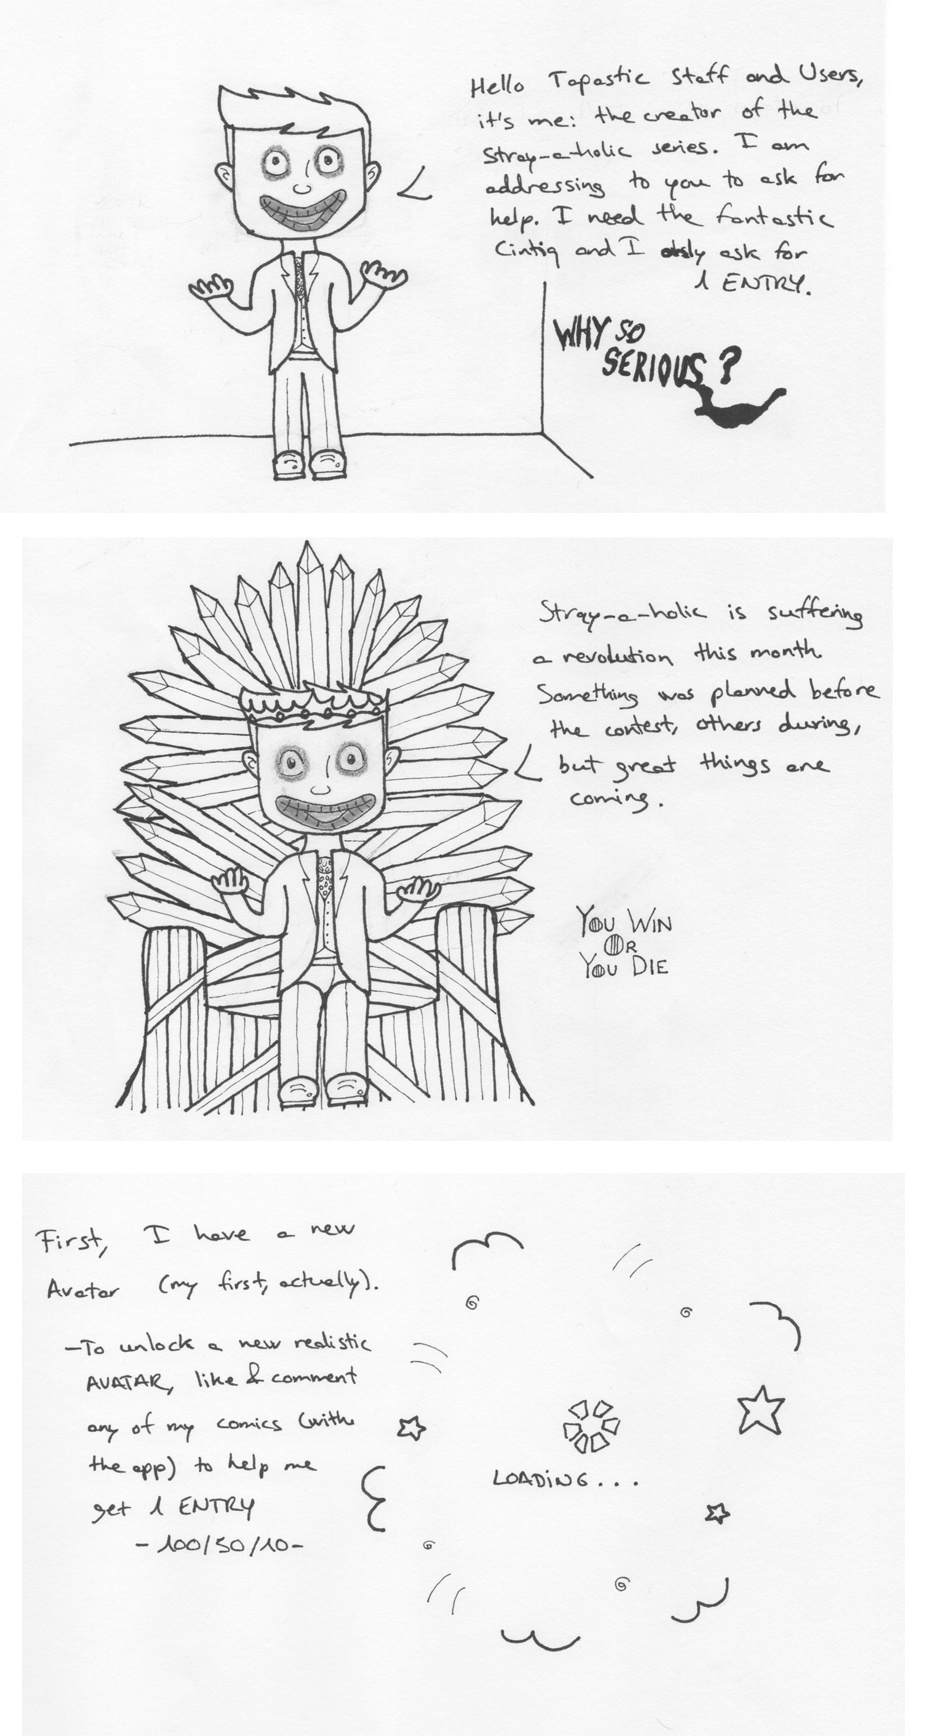 Hello Tapastic Staff and Users,
it's me: the creator of the
Stray-a-holic series. I am
addressing to you to ask for
help. I need the fantastic
Cintiq and I only ask for
1 ENTRY.
WHY SO
SERIOUS?
Stray-a-holic is suffering
a revolution this month.
Something was planned before
the contest, others during,
but great things are
coming.
YOU WIN
OR
YOU DIE
First, I have a new
Avatar (my first, actually).
-To unlock a new realistic
AVATAR, like & comment
any of my comics (with
the app) to help me
get 1 ENTRY
-100/50/10-
LOADING...